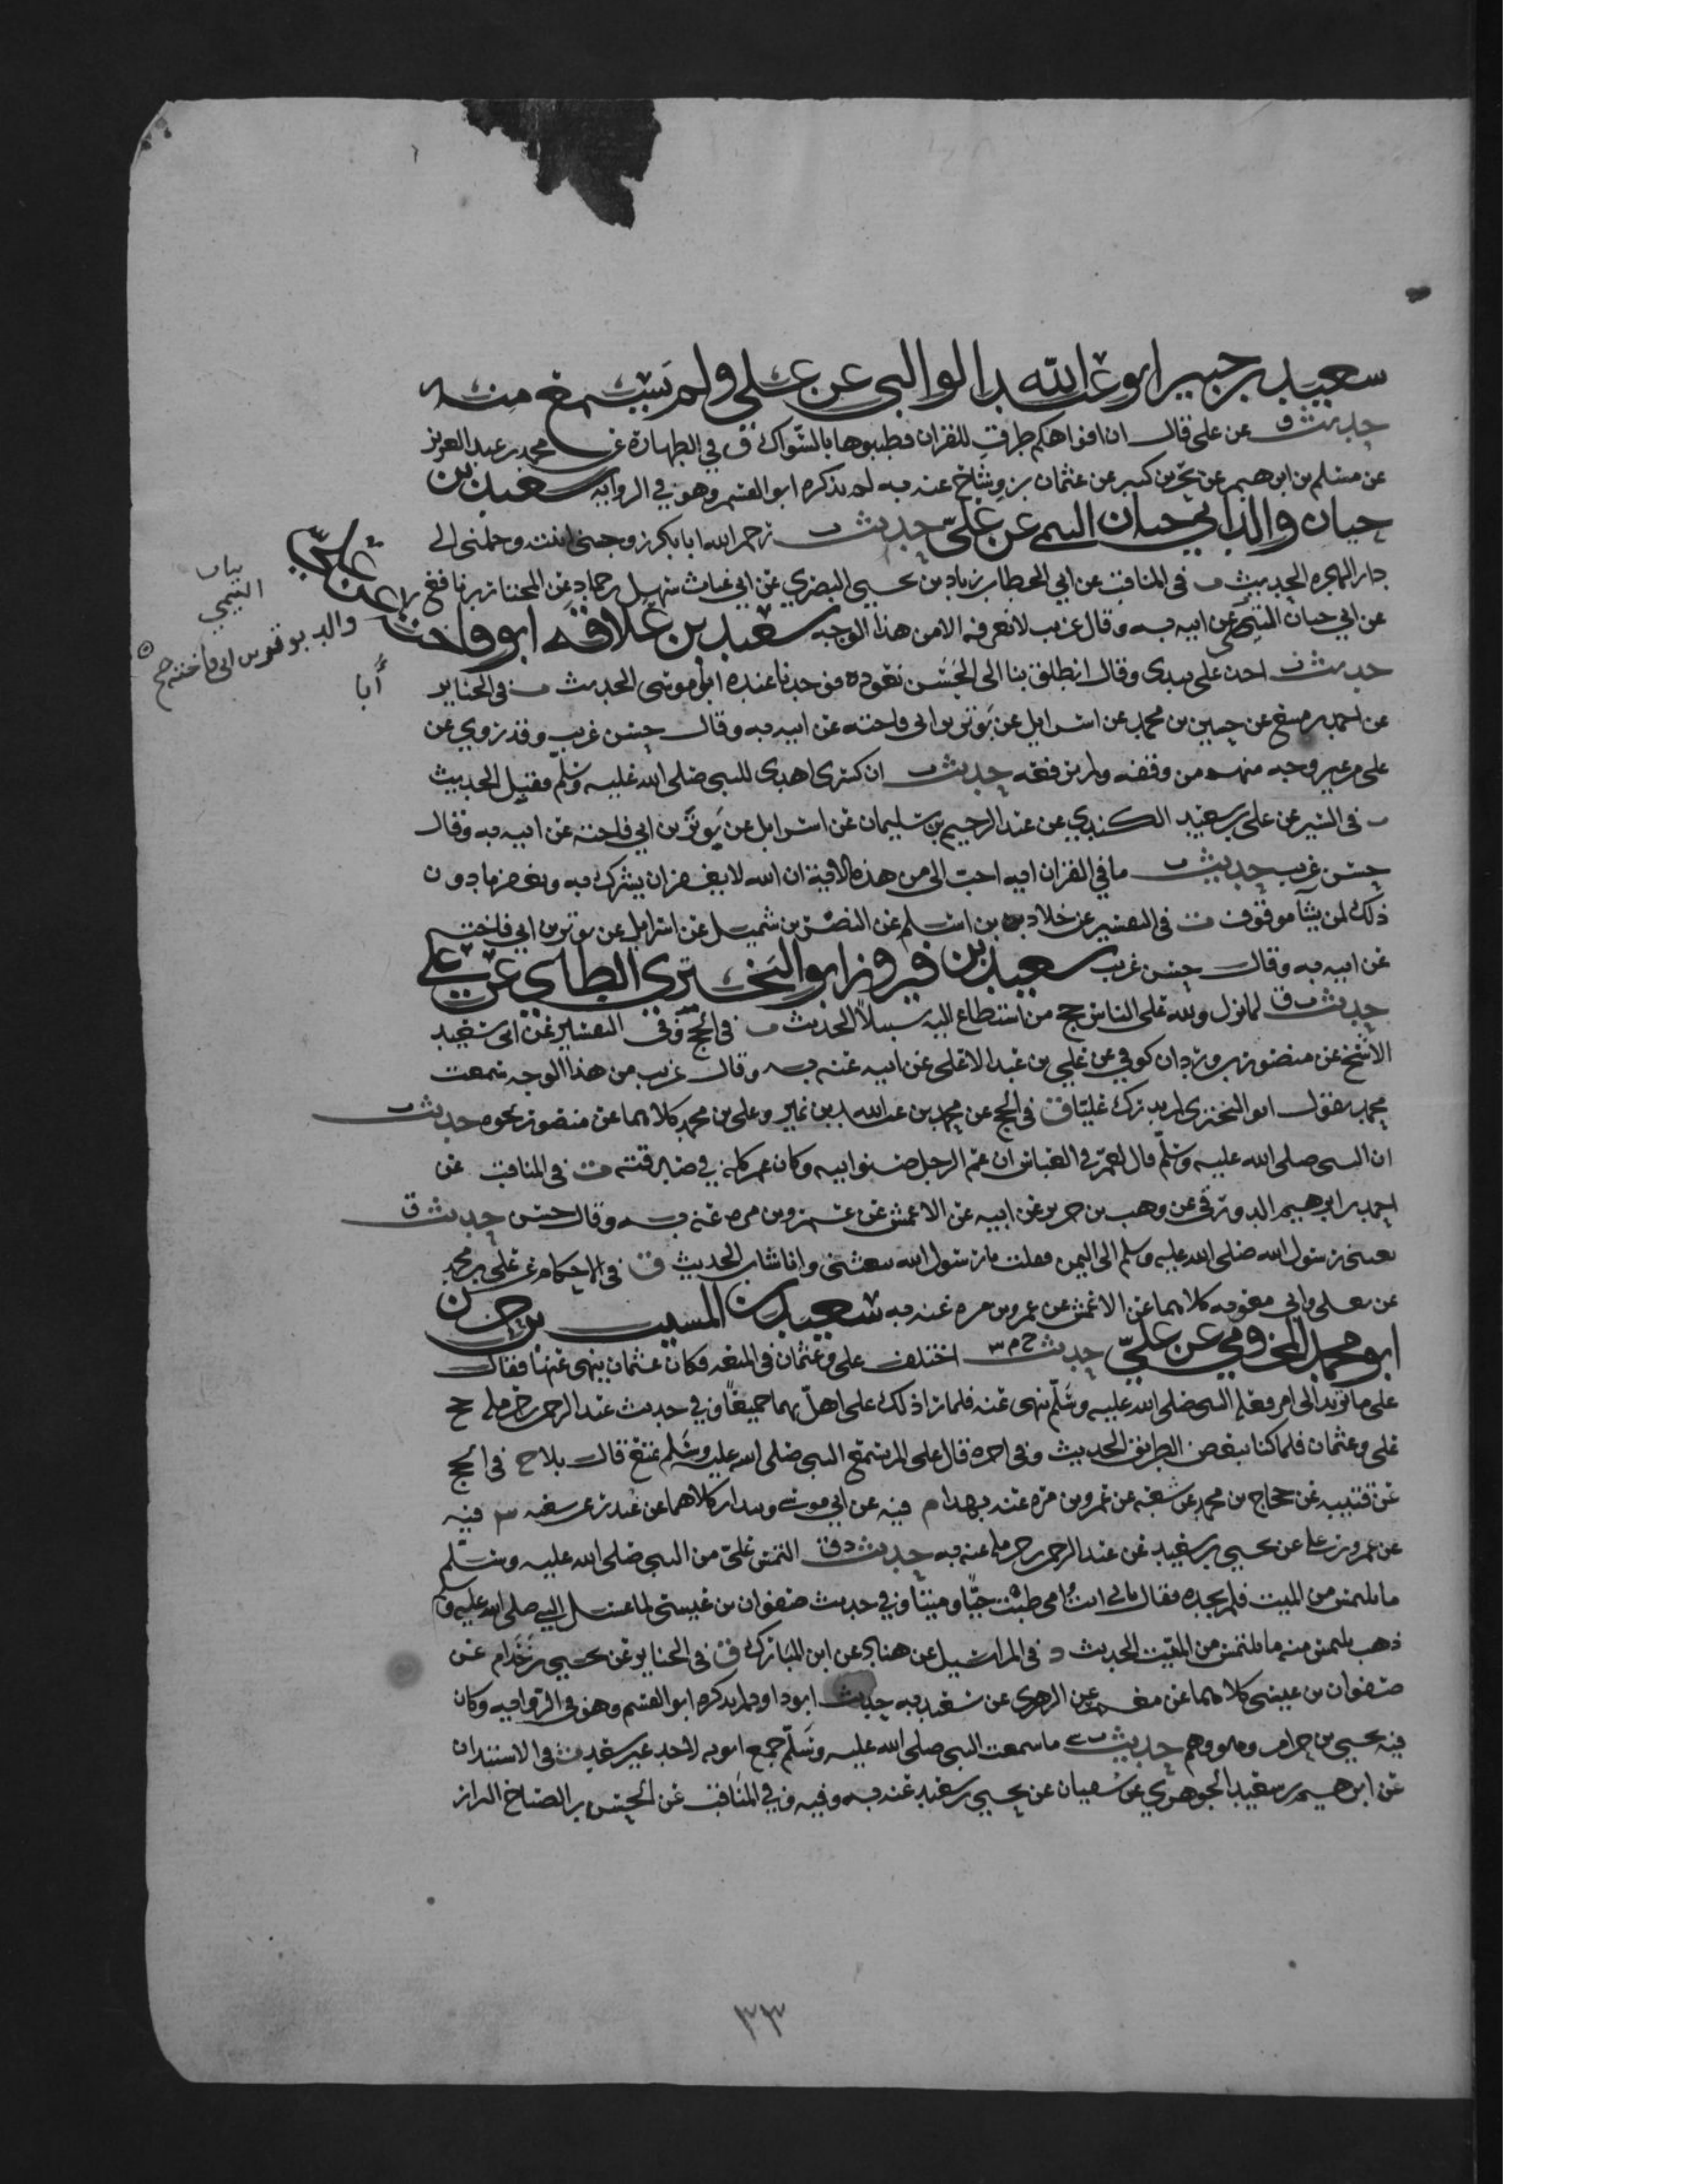 سعيد بن جبير ابو عبد الله الوالبي عن علي ولم يسمع منه
حديث ق عن علي قال ان افواهكم طرق للقران فطيبوها بالسواك ق في الطهارة عن محمد بن عبد العزيز
عن مسلم بن ابرهيم عن بحر بن كنيز عن عثمان بن ساج عنه به لم يذكره ابو القسم وهو في الرواية سعيد بن
حيان والد ابي حيان التيمي عن علي حديث ت رحم الله ابا بكر زوجني ابنته وحملني الى
دار الهجره الحديث ت في المناقب عن ابي الخطاب زياد بن يحيى البصري عن ابي عتاب سهل بن حماد عن المختار بن نافع
عن ابي حيان التيمي عن ابيه به وقال غريب لا نعرفه الا من هذا الوجه سعيد بن علاقة ابو فاختة
عن علي
بيان
التيمي
والد ثوير بن ابي فاختة صح
أبا
حديث ت اخذ علي بيدي وقال انطلق بنا الى الحسن نعوده فوجدنا عنده ابا موسى الحديث ت في الجنايز
عن احمد بن منيع عن حسين بن محمد عن اسرايل عن ثوير بن ابي فاخته عن ابيه به وقال حسن غريب وقد روي عن
علي من غير وجه منهم من وقفه ولم يرفعه حديث ت ان كسرى اهدى للنبي صلى الله عليه وسلم فقبل الحديث
ت في السير عن علي بن سعيد الكندي عن عبد الرحيم بن سليمان عن اسرايل عن ثوير بن ابي فاخته عن ابيه به وقال
حسن غريب حديث ت ما في القران ايه احب الي من هذه الاية ان الله لا يغفر ان يشرك به ويغفر ما دون
ذلك لمن يشا موقوف ت في التفسير عن خلاد بن اسلم عن النضر بن شميل عن اسرايل عن ثوير بن ابي فاخته
عن ابيه به وقال حسن غريب سعيد بن فيروز ابو البختري الطاي عن علي
حديث ت ق لما نزل ولله على الناس حج من استطاع اليه سبيلا الحديث ت في الحج وفي التفسير عن ابي سعيد
الاشج عن منصور بن وردان كوفي عن علي بن عبد الاعلى عن ابيه عنه به وقال غريب من هذا الوجه سمعت
محمد يقول ابو البختري لم يدرك عليا ق في الحج عن محمد بن عبد الله بن نمير وعلي بن محمد كلاهما عن منصور نحوه حديث ت
ان النبي صلى الله عليه وسلم قال لعمر في العباس ان عم الرجل صنو ابيه وكان عمر كلمه في صدقته ت في المناقب عن
احمد بن ابرهيم الدورقي عن وهب بن جرير عن ابيه عن الاعمش عن عمرو بن مره عنه به وقال حسن حديث ق
بعثني رسول الله صلى الله عليه وسلم الى اليمن فقلت يا رسول الله تبعثني وانا شاب الحديث ق في الاحكام عن علي بن محمد
عن يعلى وابي معويه كلاهما عن الاعمش عن عمرو بن مره عنه به سعيد بن المسيب بن حزن
ابو محمد المخزومي عن علي حديث خ م س اختلف علي وعثمان في المتعه فكان عثمان ينهى عنها فقال
علي ما تريد الى امر فعله النبي صلى الله عليه وسلم تنهى عنه فلما راى ذلك علي اهل بهما جميعا وفي حديث عبد الرحمن بن حرمله حج
علي وعثمان فلما كنا ببعض الطريق الحديث وفي اخره قال علي الم تسمع النبي صلى الله عليه وسلم تمتع قال بلى خ في الحج
عن قتيبه عن حجاج بن محمد عن شعبه عن عمرو بن مره عنه بهذا م فيه عن ابي موسى وبندار كلاهما عن غندر عن شعبه س فيه
عن عمرو بن علي عن يحيى بن سعيد عن عبد الرحمن بن حرمله عنه به حديث د ق التمس علي من النبي صلى الله عليه وسلم
ما يلتمس من الميت فلم يجده فقال بابي انت وامي طبت حيا وميتا وفي حديث صفوان بن عيسى لما غسل النبي صلى الله عليه وسلم
ذهب يلتمس منه ما يلتمس من الميت الحديث د في المراسيل عن هناد عن ابن المبارك ق في الجنايز عن يحيى بن خذام عن
صفوان بن عيسى كلاهما عن معمر عن الزهري عن سعيد به حديث ابو داود لم يذكره ابو القسم وهو في الرواية وكان
فيه يحيى بن حزام وهو وهم حديث ت سي ما سمعت النبي صلى الله عليه وسلم جمع ابويه لاحد غير سعد ت في الاستيذان
عن ابرهيم بن سعيد الجوهري عن سفيان عن يحيى بن سعيد عنه به وفيه وفي المناقب عن الحسن بن الصباح البزاز
٣٣